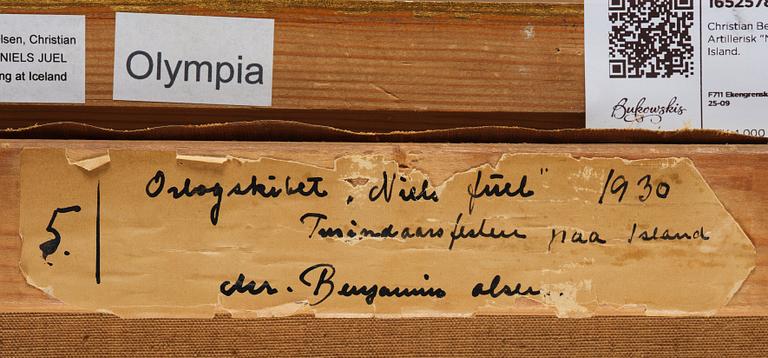 lsen, Christian
NIELS JUEL
ng at Iceland
Olympia
1652578
Christian Be
Artillerisk "N
Island.
Bukowskis
F711 Ekengrensk
25-09
1 000
5.
Orlogskibet „Niels Juel" 1930
Tusindaarsfesten paa Island
Chr. Benjamin Olsen.